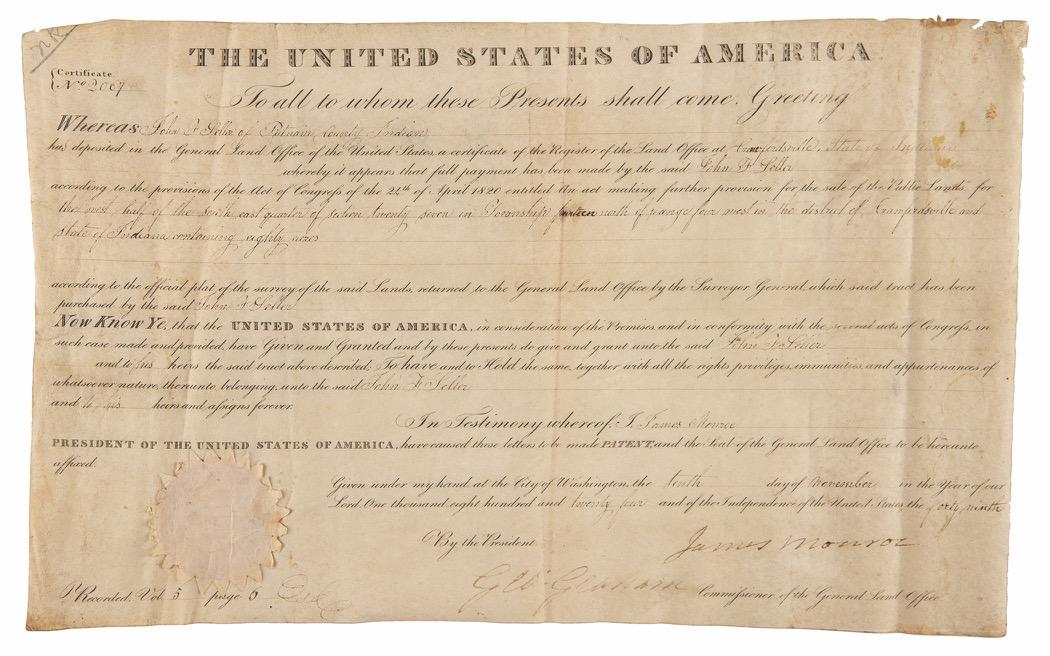 THE UNITED STATES OF AMERICA
Certificate
No. 2067
To all to whom these Presents shall come, Greeting
Whereas John F Seller of Putnam County Indiana
has deposited in the General Land Office of the United States, a certificate of the Register of the Land Office at Crawfordsville, State of Indiana
whereby it appears that full payment has been made by the said John F Seller
according to the provisions of the Act of Congress of the 24th of April 1820 entitled An act making further provision for the sale of the Public Lands for
the west half of the south east quarter of section twenty seven in Township fourteen north of range four west in the district of Crawfordsville and
state of Indiana containing eighty acres
according to the official plat of the survey of the said Lands, returned to the General Land Office by the Surveyor General, which said tract has been
purchased by the said John F Seller
Now Know Ye, that the UNITED STATES OF AMERICA, in consideration of the Premises, and in conformity with the several acts of Congress, in
such case made and provided, have Given and Granted and by these presents do give and grant unto the said John F Seller
and to his heirs the said tract above described; To have and to Hold the same, together with all the rights privileges, immunities, and appurtenances of
whatsoever nature, thereunto belonging, unto the said John F Seller
and to his heirs and assigns forever.
In Testimony whereof, I, James Monroe
PRESIDENT OF THE UNITED STATES OF AMERICA, have caused these letters to be made PATENT, and the Seal of the General Land Office to be hereunto
affixed.
Given under my hand, at the City of Washington, the tenth day of November in the Year of our
Lord, One thousand eight hundred and twenty four and of the Independence of the United States the forty ninth
By the President
James Monroe
Geo Graham Commissioner of the General Land Office
Recorded, Vol 5 page 6